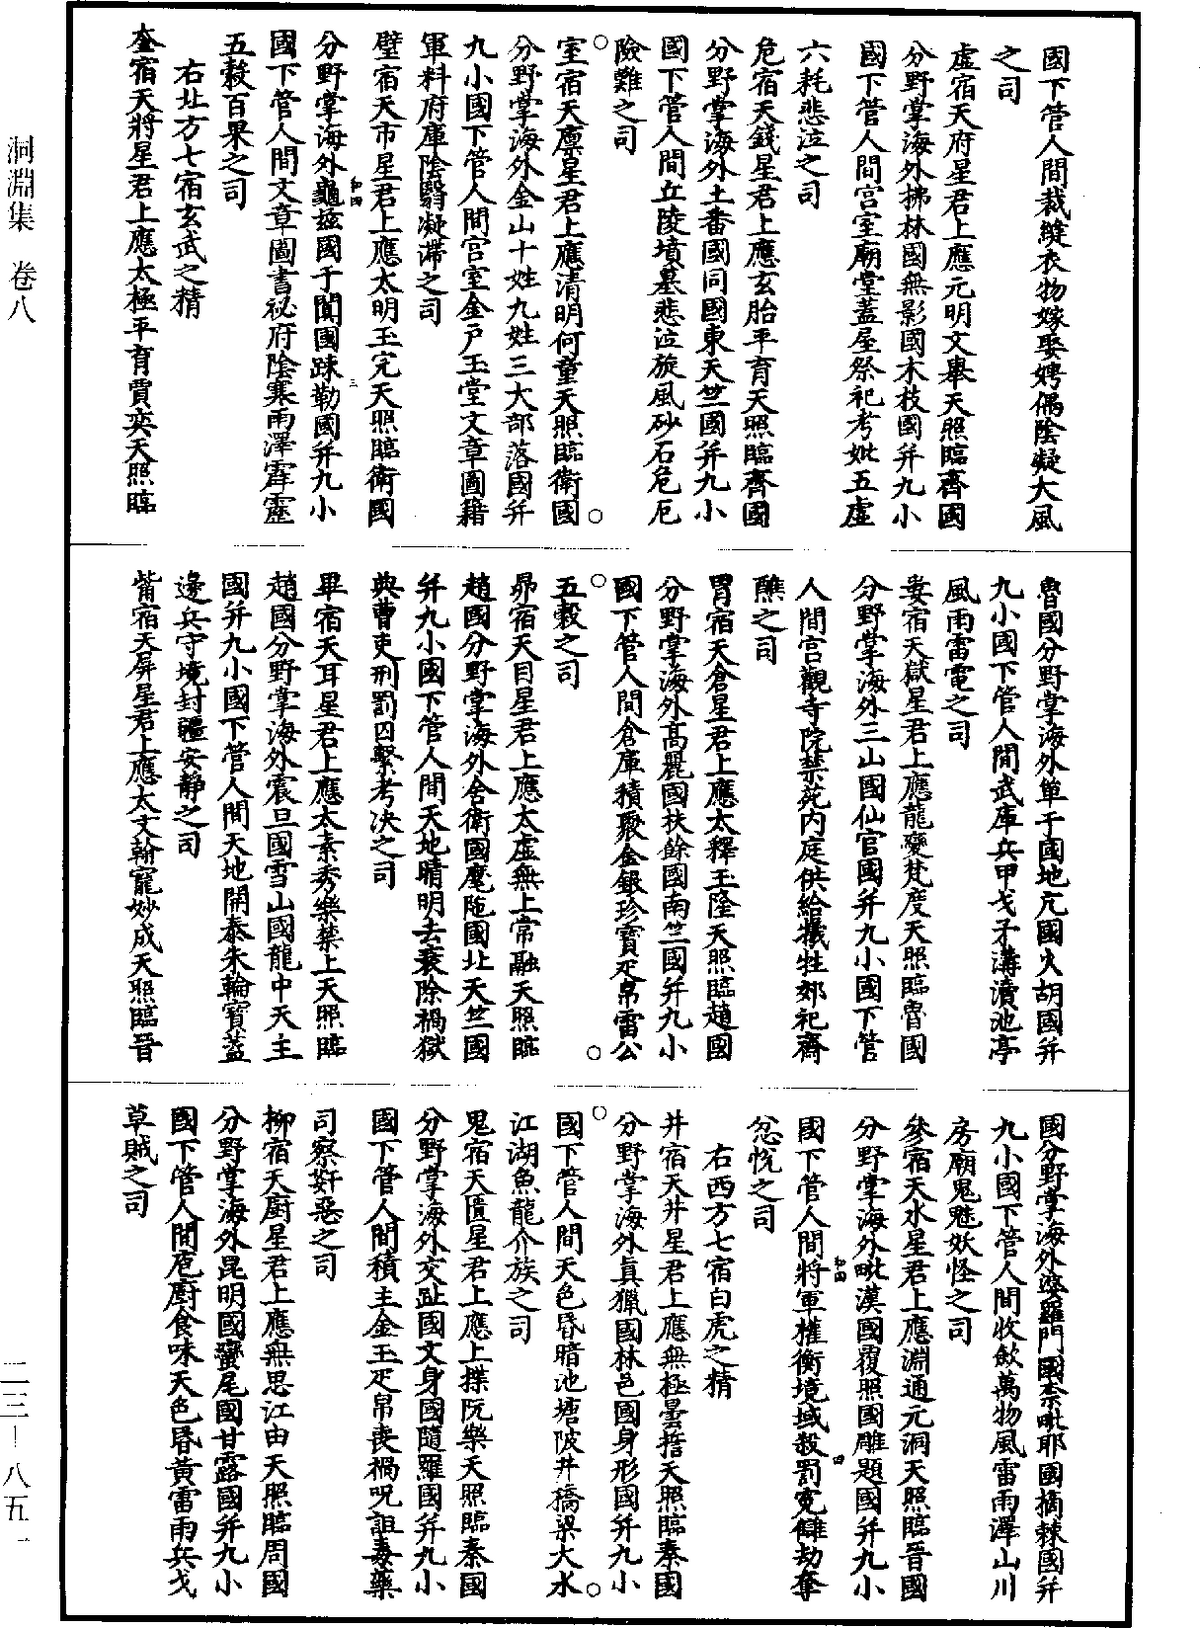 國下管人間裁縫衣物嫁娶娉偶陰凝大風
之司
虛宿天府星君上應元明文舉天照臨齊國
分野掌海外拂林國無影國木枝國并九小
國下管人間宮室廟堂蓋屋祭祀考妣五虛
六耗悲泣之司
危宿天錢星君上應玄胎平育天照臨齊國
分野掌海外土番國同國東天竺國并九小
國下管人間丘陵墳墓悲泣旋風砂石危厄
險難之司
室宿天廩星君上應清明何童天照臨衛國
分野掌海外金山十姓九姓三大部落國并
九小國下管人間宮室金戶玉堂文章圖籍
軍料府庫陰翳凝滯之司
壁宿天市星君上應太明玉完天照臨衛國
分野掌海外龜茲國于闐國踈勒國并九小
國下管人間文章圖書祕府陰寒雨澤霹靂
五穀百果之司
右北方七宿玄武之精
奎宿天將星君上應太極平育賈奕天照臨
魯國分野掌海外單于國地亢國火胡國并
九小國下管人間武庫兵甲戈矛溝瀆池亭
風雨雷電之司
婁宿天獄星君上應龍變梵度天照臨魯國
分野掌海外三山國仙官國并九小國下管
人間宮觀寺院禁苑内庭供給犧牲郊祀齋
醮之司
胃宿天倉星君上應太釋玉隆天照臨趙國
分野掌海外高麗國扶餘國南竺國并九小
國下管人間倉庫積聚金銀珍寶疋帛雷公
五穀之司
昴宿天目星君上應太虛無上常融天照臨
趙國分野掌海外舍衛國麾陁國北天竺國
并九小國下管人間天地晴明去衰除禍獄
典曹吏刑罰囚繫考決之司
畢宿天耳星君上應太素秀樂禁上天照臨
趙國分野掌海外震旦國雪山國龍中天主
國并九小國下管人間天地開泰朱輪寶蓋
邊兵守境封疆安靜之司
觜宿天屏星君上應太文翰寵妙成天照臨晉
國分野掌海外婆羅門國柰毗耶國摘棘國并
九小國下管人間收斂萬物風雷雨澤山川
房廟鬼魅妖怪之司
參宿天水星君上應淵通元洞天照臨晉國
分野掌海外毗漢國覆照國雕題國并九小
國下管人間將軍權衡境域殺罰寃讎劫奪
忿悅之司
右西方七宿白虎之精
井宿天井星君上應無極曇誓天照臨秦國
分野掌海外真獵國林邑國身形國并九小
國下管人間天色昏暗池塘陂井橋梁大水
江湖魚龍介族之司
鬼宿天匱星君上應上揲阮樂天照臨秦國
分野掌海外交趾國文身國隨羅國并九小
國下管人間積主金玉疋帛喪禍呪詛毒藥
司察奸惡之司
柳宿天廚星君上應無思江由天照臨周國
分野掌海外昆明國蠻尾國甘露國并九小
國下管人間庖廚食味天色昏黃雷雨兵戈
草賊之司
洞淵集　卷八
二三—八五一